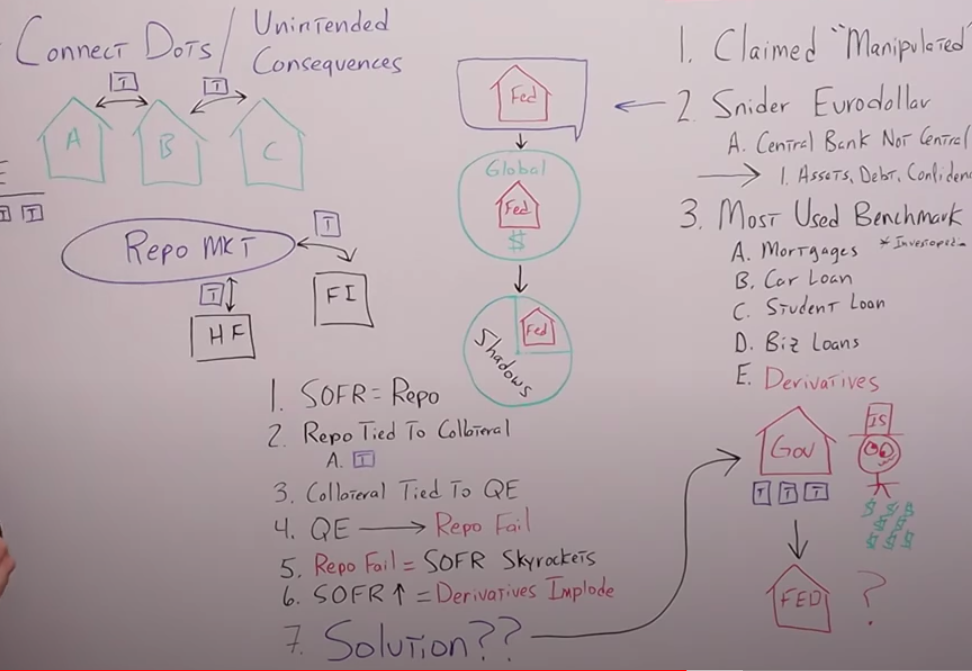 Connect Dots/
Unintended
Consequences
T
T
A
B
C
E
T T
Repo MKT
T
T
HF
FI
Fed
Global
Fed
$
Fed
Shadows
1. SOFR = Repo
2. Repo Tied To Collateral
A. T
3. Collateral Tied To QE
4. QE → Repo Fail
5. Repo Fail = SOFR Skyrockets
6. SOFR ↑ = Derivatives Implode
7. Solution??
1. Claimed "Manipulated"
2. Snider Eurodollar
A. Central Bank Not Central
1. Assets, Debt,
3. Most Used Benchmark
A. Mortgages
B. Car Loan
C. Student Loan
D. Biz Loans
E. Derivatives
Gov
T T T
IS
$ $ $
$ $
$ $ $
FED ?